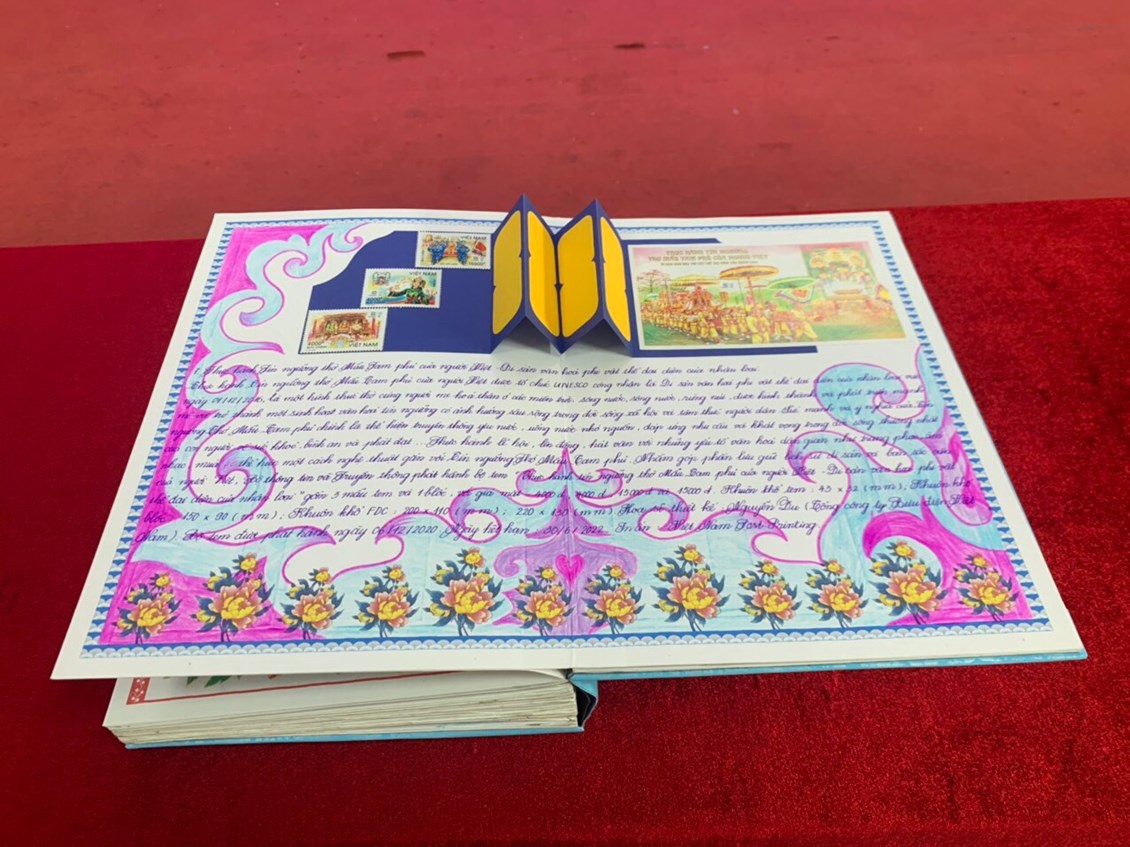 VIỆT NAM
VIỆT NAM
VIỆT NAM
THỰC HÀNH TÍN NGƯỠNG
THỜ MẪU TAM PHỦ CỦA NGƯỜI VIỆT
Thực hành Tín ngưỡng thờ Mẫu Tam phủ của người Việt - Di sản văn hoá phi vật thể đại diện của nhân loại
Thực hành Tín ngưỡng thờ Mẫu Tam phủ của người Việt được tổ chức UNESCO công nhận là Di sản văn hoá phi vật thể đại diện của nhân loại
ngày 01.12.2020, là một hình thức thờ cúng người mẹ hoá thân ở các miền trời, sông nước, rừng núi, được hình thành và phát triển
và trở thành một sinh hoạt văn hoá tín ngưỡng có ảnh hưởng sâu rộng trong đời sống xã hội và tâm thức người dân. Sức mạnh và ý nghĩa của Tín
ngưỡng Thờ Mẫu Tam phủ chính là thể hiện truyền thống yêu nước, uống nước nhớ nguồn, đáp ứng nhu cầu và khát vọng trong đời sống thường nhật
của con người, sức khoẻ, bình an và phát đạt. Thực hành lễ hội, lên đồng, hát văn với những yếu tố văn hoá dân gian như trang phục,
nhạc, múa thể hiện một cách nghệ thuật gắn với Tín ngưỡng Thờ Mẫu Tam phủ. Nhằm góp phần lưu giữ di sản và bản sắc
của người Việt, Bộ thông tin và Truyền thông phát hành bộ tem "Thực hành tín ngưỡng thờ Mẫu Tam phủ của người Việt - Di sản văn hoá phi vật
thể đại diện của nhân loại" gồm 3 mẫu tem và 1 blốc, với giá mặt 4000đ 15000đ và 15000đ. Khuôn khổ tem: 43 x 32 (mm); Khuôn khổ
blốc: 150 x 90 (mm); Khuôn khổ FDC: 200 x 110 (mm); 220 x 130 (mm) Hoạ sĩ thiết kế: Nguyễn Du (Tổng công ty Bưu điện Việt
Nam). Bộ tem được phát hành ngày 06/12/2020. Ngày hết hạn 30/6/2022. In ấn: Việt Nam Post Printing.